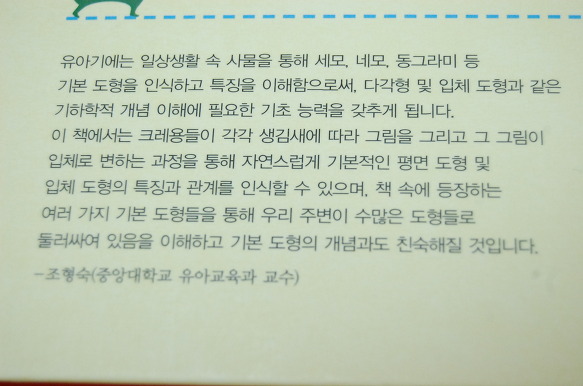 유아기에는 일상생활 속 사물을 통해 세모, 네모, 동그라미 등
기본 도형을 인식하고 특징을 이해함으로써, 다각형 및 입체 도형과 같은
기하학적 개념 이해에 필요한 기초 능력을 갖추게 됩니다.
이 책에서는 크레용들이 각각 생김새에 따라 그림을 그리고 그 그림이
입체로 변하는 과정을 통해 자연스럽게 기본적인 평면 도형 및
입체 도형의 특징과 관계를 인식할 수 있으며, 책 속에 등장하는
여러 가지 기본 도형들을 통해 우리 주변이 수많은 도형들로
둘러싸여 있음을 이해하고 기본 도형의 개념과도 친숙해질 것입니다.
-조형숙(중앙대학교 유아교육과 교수)